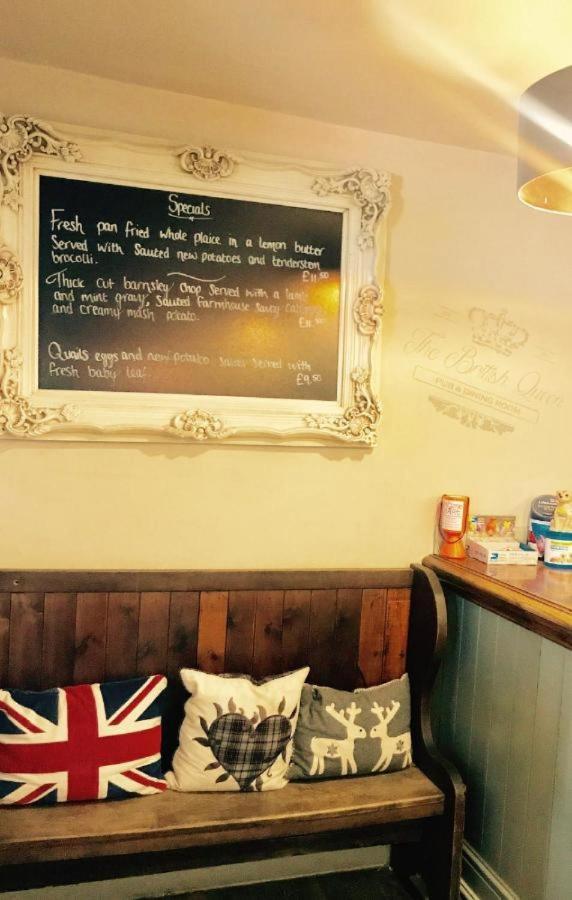 Specials
Fresh pan fried whole plaice in a lemon butter
Served with Sauted new potatoes and tenderstem
brocolli. £11.50
Thick cut barnsley chop served with a lamb
and mint gravy, Sauted Farmhouse Savoy
and creamy mash potato. £11.50
Quails eggs and new potato served with
fresh baby leaf. £9.50
The British Queen
PUB & DINING ROOM